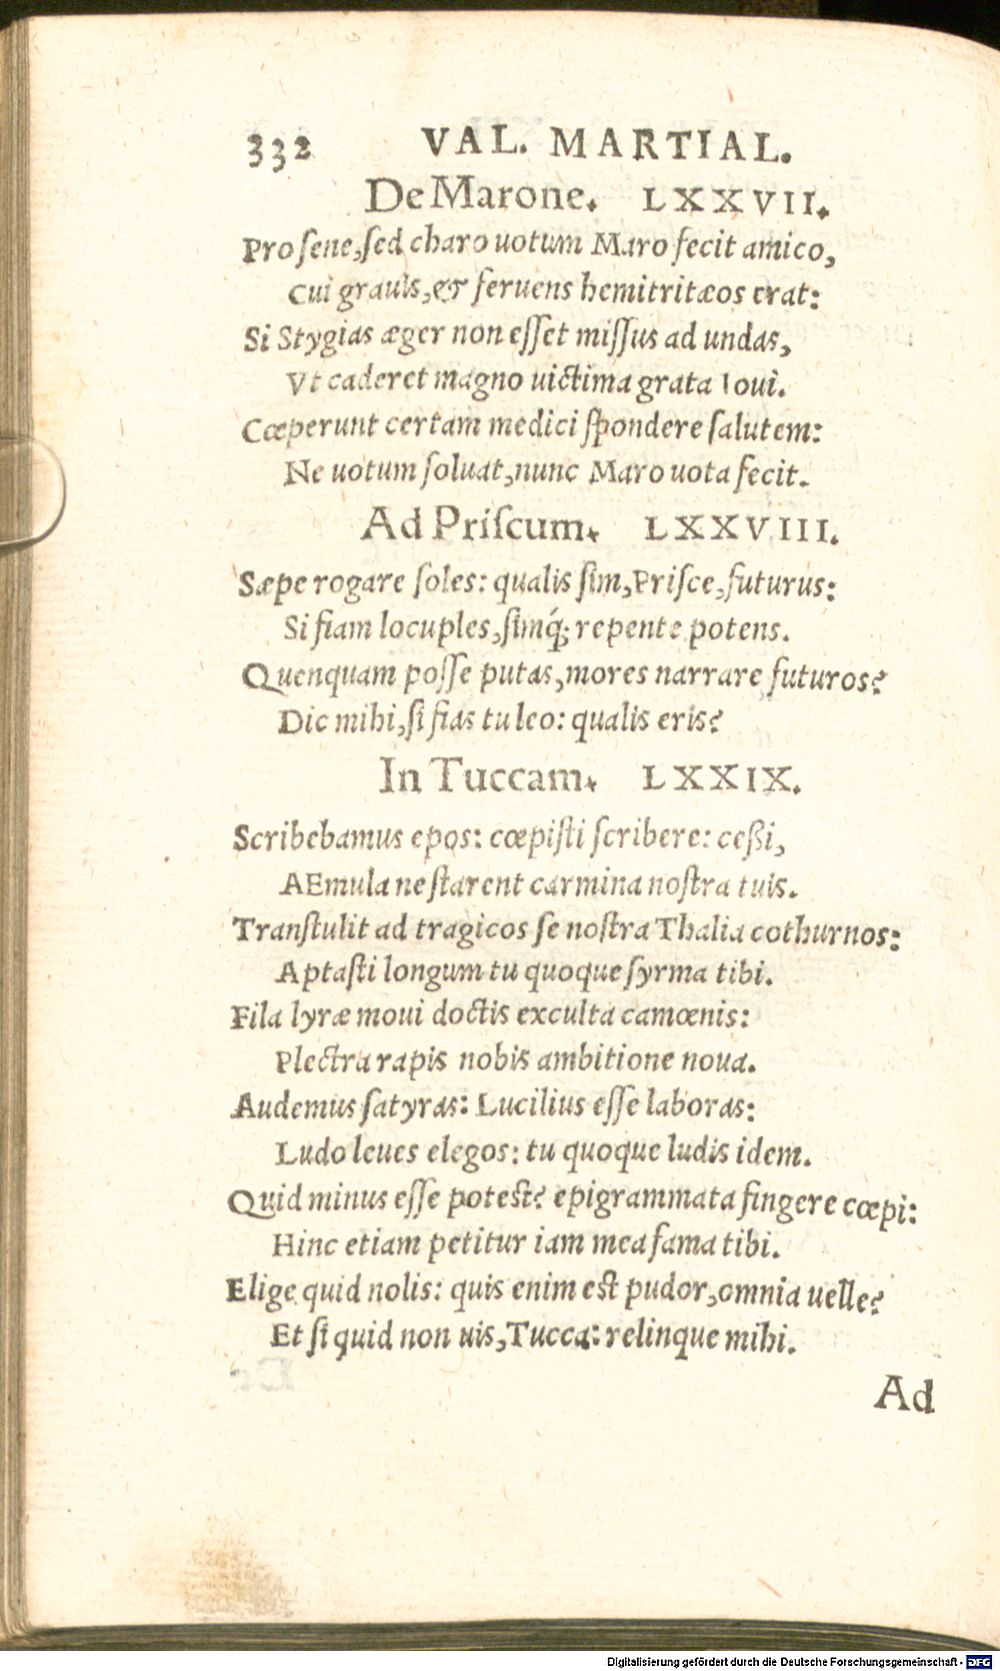 332 VAL. MARTIAL.
De Marone. LXXVII.
Pro ſene, ſed charo uotum Maro fecit amico,
Cui grauis, & feruens hemitritæos erat:
Si Stygias æger non eſſet miſſus ad undas,
Vt caderet magno uictima grata Ioui.
Cœperunt certam medici ſpondere ſalutem:
Ne uotum ſoluat, nunc Maro uota fecit.
Ad Priſcum. LXXVIII.
Sæpe rogare ſoles: qualis ſim, Priſce, futurus:
Si fiam locuples, ſimq́; repente potens.
Quenquam poſſe putas, mores narrare futuros?
Dic mihi, ſi fias tu leo: qualis eris?
In Tuccam. LXXIX.
Scribebamus epos: cœpiſti ſcribere: ceßi,
AEmula ne ſtarent carmina noſtra tuis.
Tranſtulit ad tragicos ſe noſtra Thalia cothurnos:
Aptaſti longum tu quoque ſyrma tibi.
Fila lyræ moui doctis exculta camœnis:
Plectra rapis nobis ambitione noua.
Audemus ſatyras: Lucilius eſſe laboras:
Ludo leues elegos: tu quoque ludis idem.
Quid minus eſſe poteſt? epigrammata fingere cœpi:
Hinc etiam petitur iam mea fama tibi.
Elige quid nolis: quis enim eſt pudor, omnia uelle?
Et ſi quid non uis, Tucca: relinque mihi.
Ad
Digitalisierung gefördert durch die Deutsche Forschungsgemeinschaft - DFG